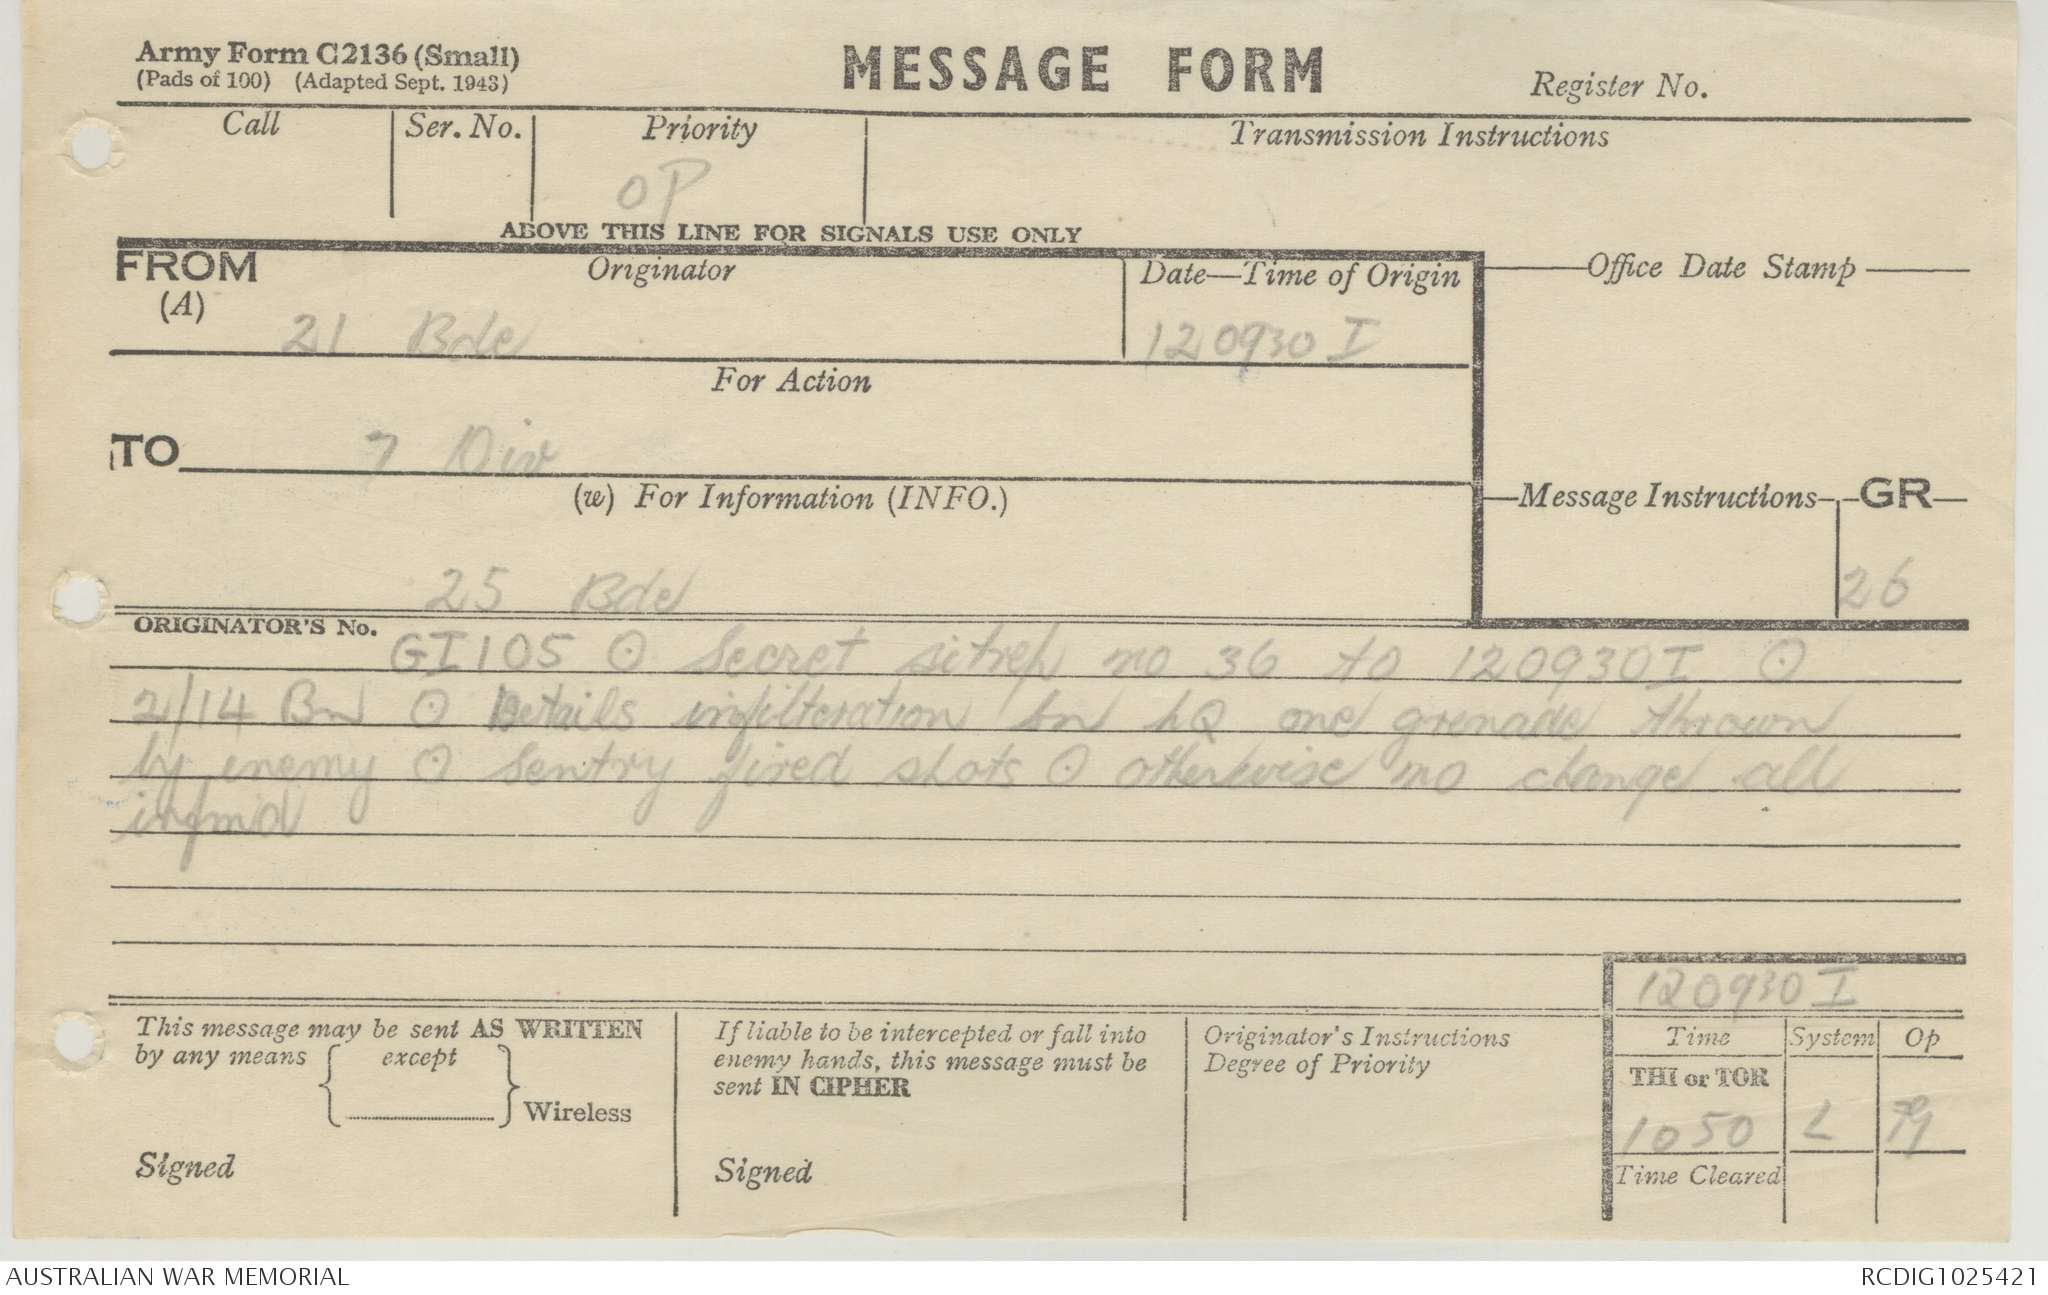 Army Form C2136 (Small)
(Pads of 100) (Adapted Sept. 1943)
MESSAGE FORM
Register No.
Call
Ser. No.
Priority
Transmission Instructions
OP
ABOVE THIS LINE FOR SIGNALS USE ONLY
FROM
(A)
Originator
Date—Time of Origin
Office Date Stamp
21 Bde
120930 I
For Action
TO
7 Div
(w) For Information (INFO.)
Message Instructions
GR
25 Bde
26
ORIGINATOR'S No.
GI105 ⊙ Secret sitrep no 36 to 120930I ⊙
2/14 Bn ⊙ Details infilteration bn hQ one grenade thrown
by enemy ⊙ Sentry fired shots ⊙ otherwise no change all
infmd
120930 I
This message may be sent AS WRITTEN
by any means except
Wireless
Signed
If liable to be intercepted or fall into
enemy hands, this message must be
sent IN CIPHER
Signed
Originator's Instructions
Degree of Priority
Time System Op
THI or TOR
1050 L
Time Cleared
AUSTRALIAN WAR MEMORIAL
RCDIG1025421